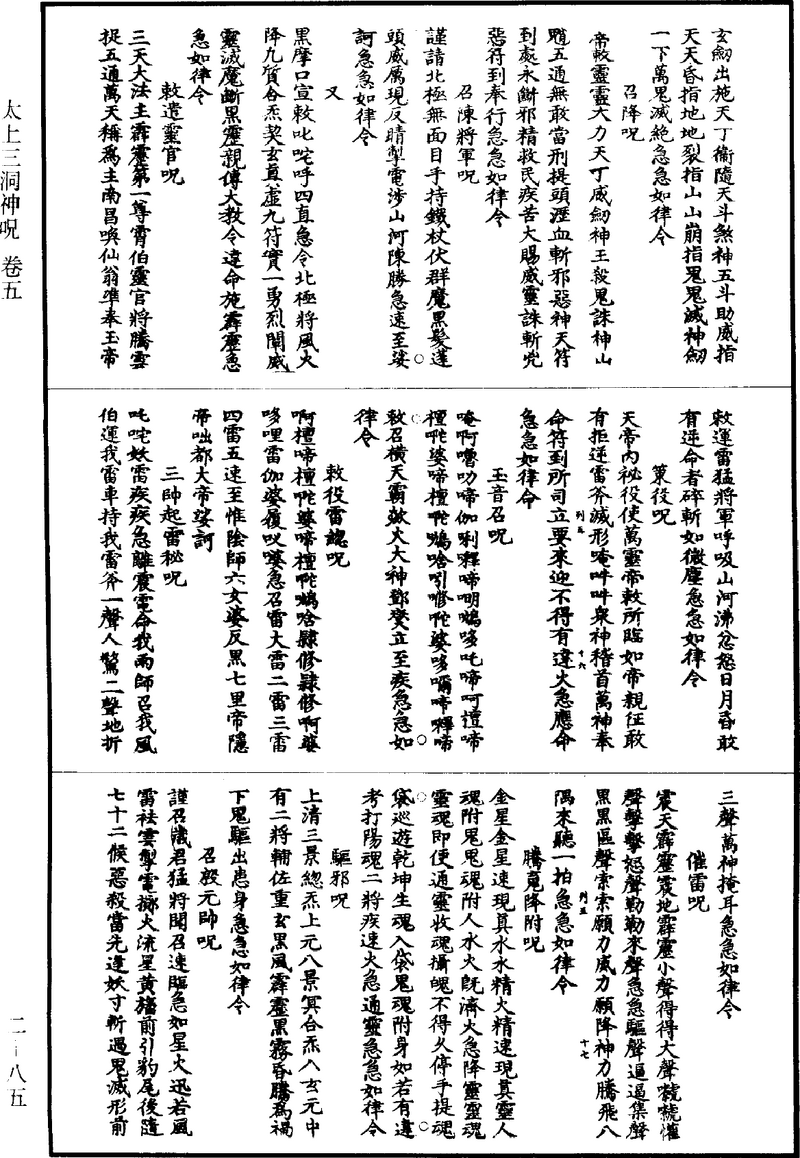 玄劒出施天丁衞隨天斗煞神五斗助威指
天天昏指地地裂指山山崩指鬼鬼滅神劒
一下萬鬼滅絶急急如律令
召降呪
帝敕靈靈大力天丁威劒神王殺鬼誅神山
魈五通無敢當刑提頭瀝血斬邪惡神天符
到處永斷邪精救民疾苦大賜威靈誅斬兇
惡符到奉行急急如律令
召陳將軍呪
謹請北極無面目手持鐵杖伏群魔黑髮蓬
頭威厲現反睛掣電涉山河陳勝急速至娑
訶急急如律令
又
黑摩口宣敕叱咤呼四直急令北極將風火
降九質合炁契玄真虛九符實一勇烈闡威
靈滅魔斷黑靈親傳大教令違命施霹靂急
急如律令
敕遣靈官呪
三天大法主霹靂第一尊霄伯靈官將騰雲
捉五通萬天稱爲主南昌喚仙翁準奉玉帝
敕運雷猛將軍呼吸山河沸忿怒日月昏敢
有逆命者碎斬如微塵急急如律令
策役呪
天帝內祕役使萬靈帝敕所臨如帝親征敢
有拒逆雷斧滅形唵吽吽衆神稽首萬神奉
命符到所司立要來迎不得有違火急應命
急急如律命
玉音召呪
唵啊嚕叻啼伽唎釋啼㗭鵮哆吒啼呵愷啼
檀㖠婆啼檀㖠鵮啥引修㖠婆哆囉啼釋啼
敕召橫天霸歘火大神鄧燮立至疾急急如
律令
敕役雷總呪
啊檀啼檀㖠婆啼檀㖠鵮啥隸修隸修啊婆
哆哩雷伽婆履哎嘙急召雷大雷二雷三雷
四雷五速至惟陰師六女婆反黑七里帝隱
帝咄都大帝娑訶
三帥起雷秘呪
吒咤妖雷疾疾急離震電命我雨師召我風
伯運我雷車持我雷斧一聲人驚二聲地折
三聲萬神掩耳急急如律令
催雷呪
震天霹靂震地霹靂小聲得得大聲虩虩催
聲擊擊怒聲勒勒來聲急急驅聲逼逼集聲
黑黑區聲索索願力威力願降神力騰飛八
隅來聽一拍急急如律令
騰鬼降附呪
金星金星速現真水水精火精速現真靈人
魂附鬼鬼魂附人水火旣濟火急降靈靈魂
靈魂即便通靈收魂攝魄不得久停手提魂
袋巡遊乾坤生魂入袋鬼魂附身如若有違
考打陽魂二將疾速火急通靈急急如律令
驅邪呪
上清三景總炁上元八景冥合炁入玄元中
有二將輔佐重玄黑風霹靂黑霧昏騰爲禍
下鬼驅出患身急急如律令
召殷元帥呪
謹召歲君猛將聞召速臨急如星火迅若風
雷袪雲掣電擲火流星黄旛前引豹尾後隨
七十二候惡殺當先逢妖寸斬遇鬼滅形前
列五
十六
列五
十七
太上三洞神呪 卷五
二—八五